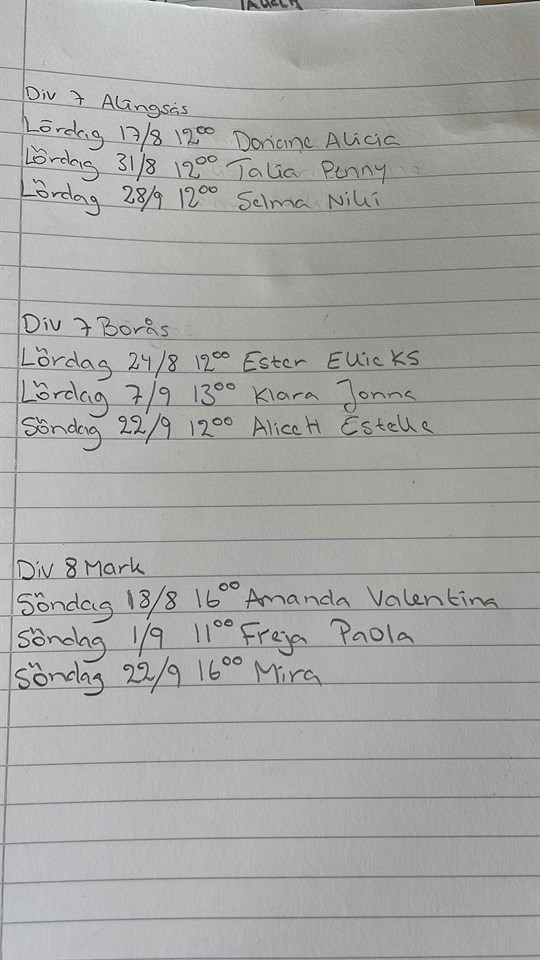 Div 7 Alingsås
Lördag 17/8 12⁰⁰ Doriane Alicia
Lördag 31/8 12⁰⁰ Talia Penny
Lördag 28/9 12⁰⁰ Selma Niki
Div 7 Borås
Lördag 24/8 12⁰⁰ Ester Ellie KS
Lördag 7/9 13⁰⁰ Klara Jonna
Söndag 22/9 12⁰⁰ Alice H Estelle
Div 8 Mark
Söndag 18/8 16⁰⁰ Amanda Valentina
Söndag 1/9 11⁰⁰ Freja Paola
Söndag 22/9 16⁰⁰ Mira